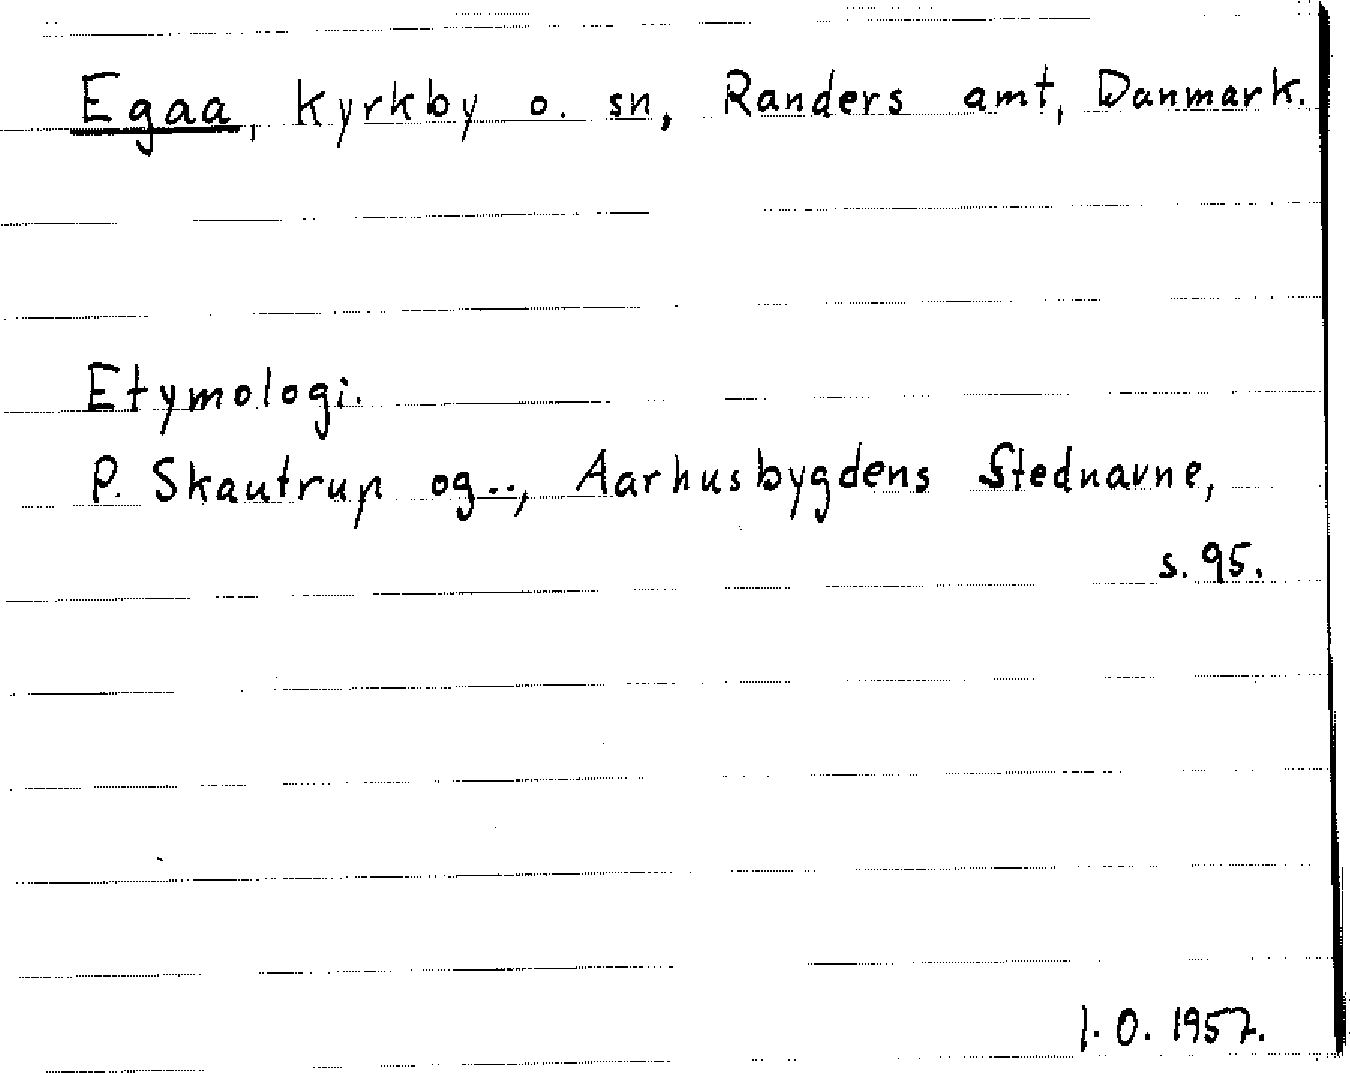 Egaa, kyrkby o. sn, Randers amt, Danmark.
Etymologi.
P. Skautrup og.., Aarhusbygdens Stednavne,
s. 95.
I. O. 1957.